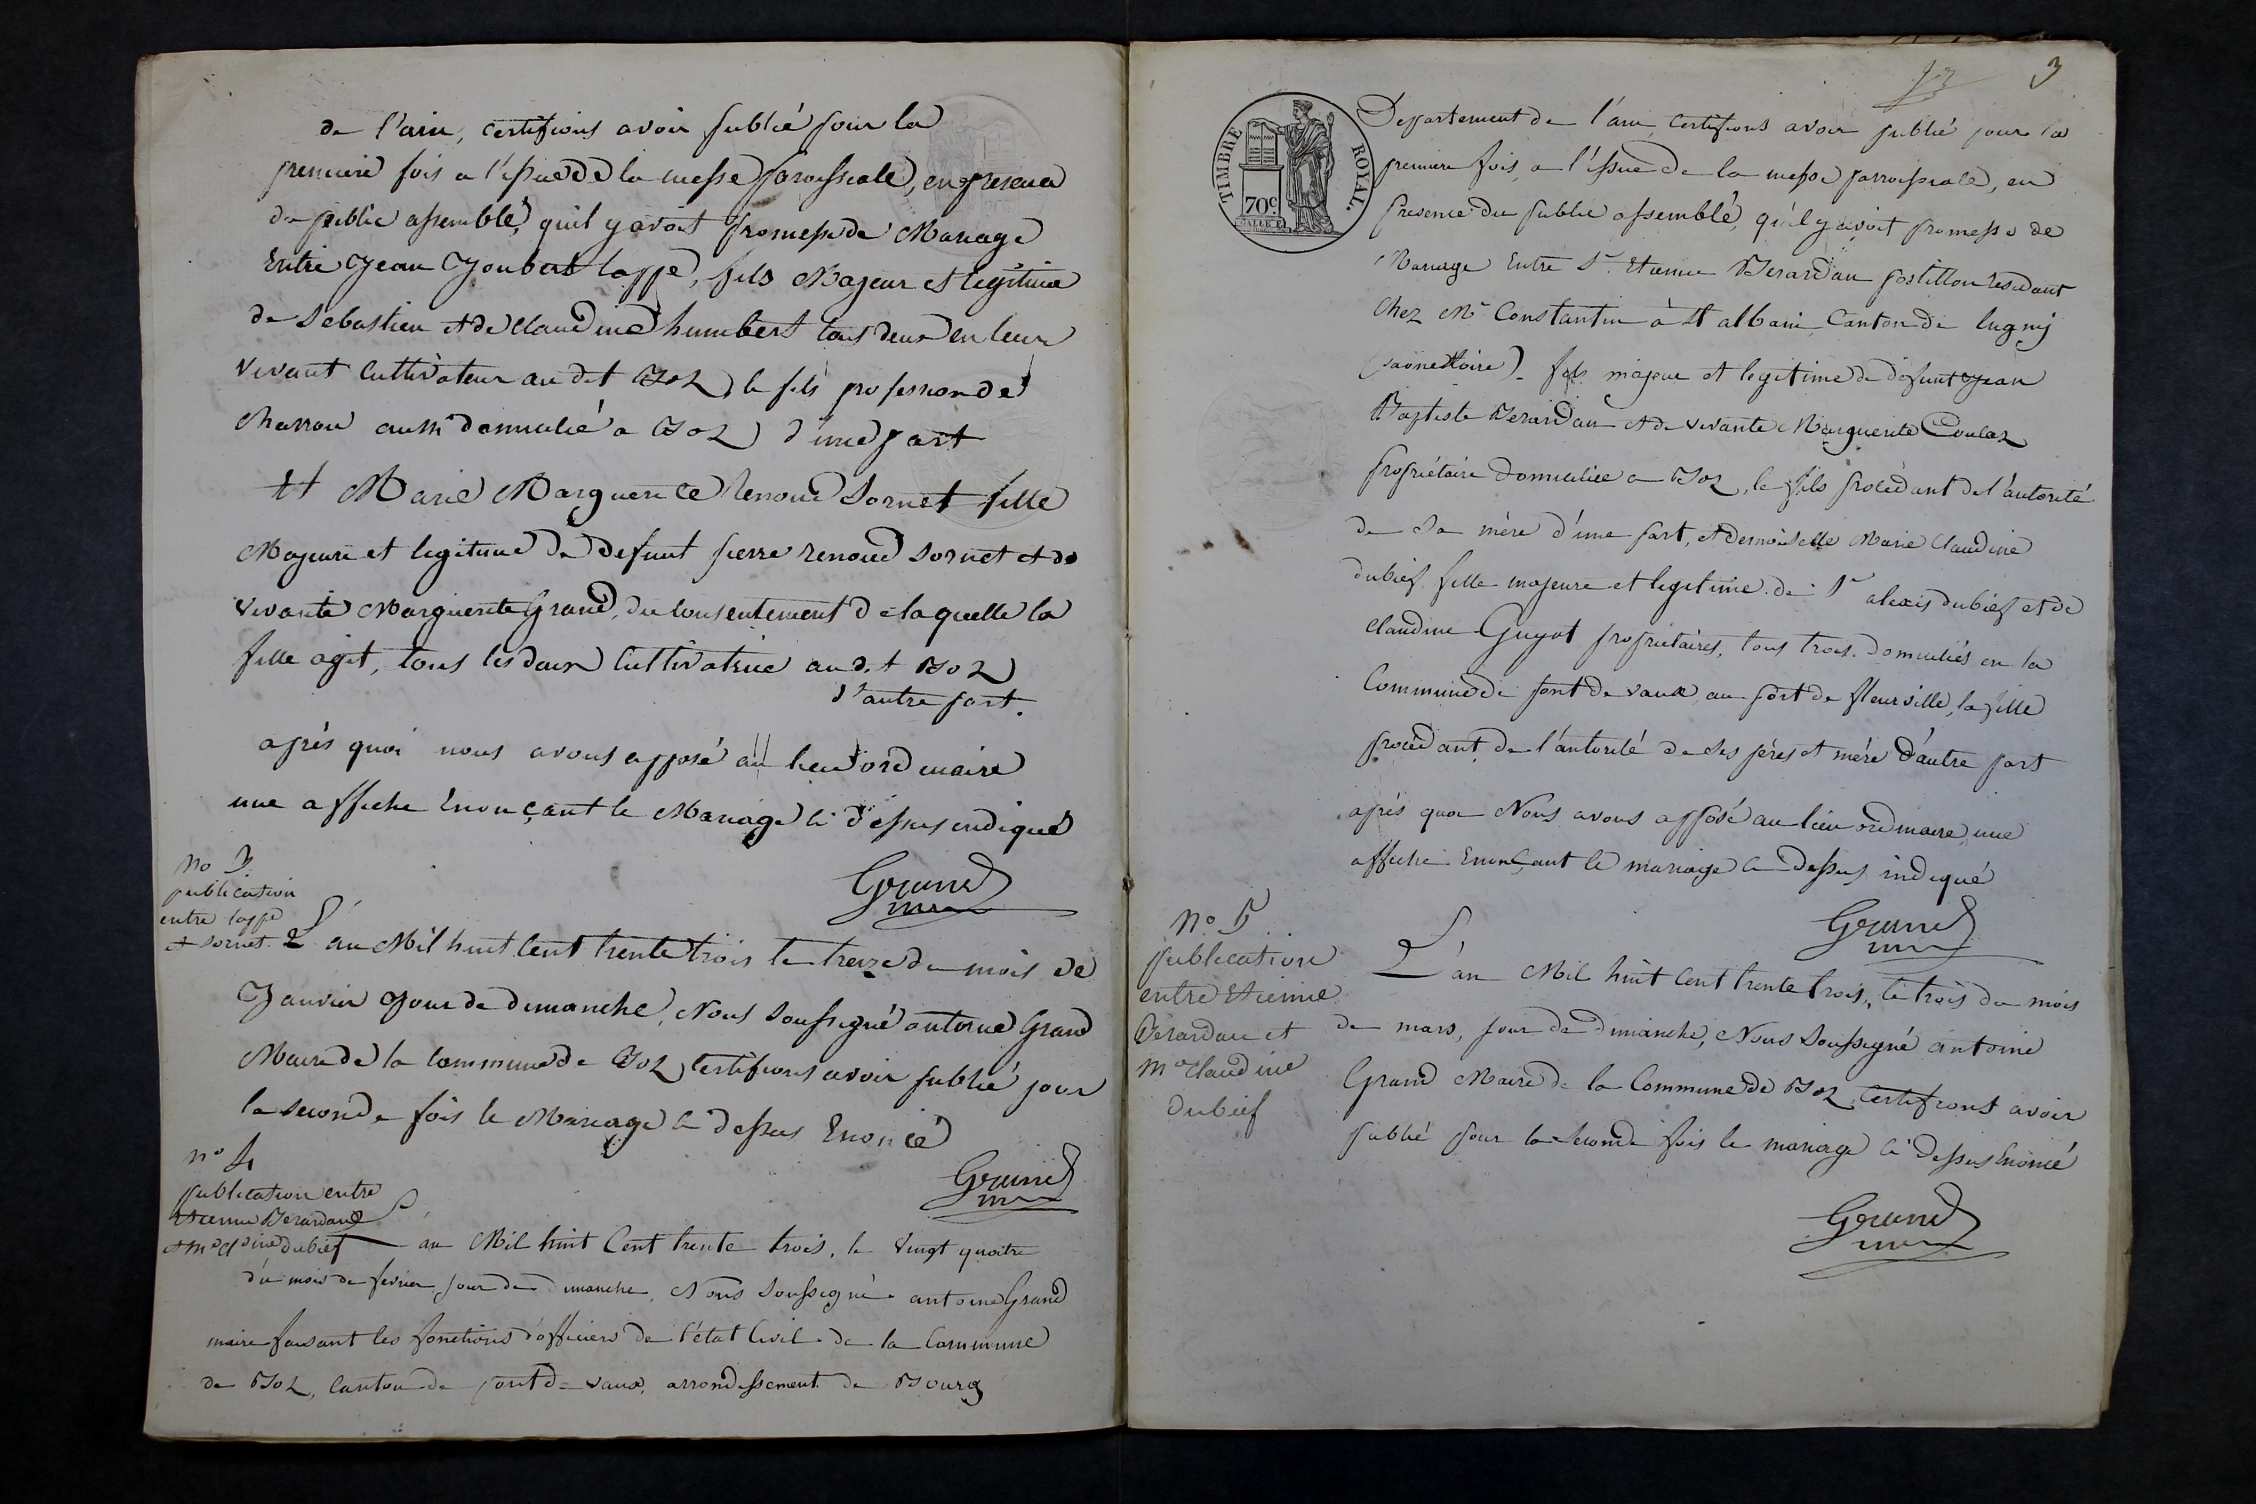 de l'ain, certifions avoir publié pour la
premiere fois a l'issue de la messe paroissiale, en presence
du public assemblé, quil y avoit promesse de Mariage
Entre Jean Joubert lappe, fils Majeur et legitime
de Sebastien et de claudine humbert tous deux en leur
vivant cultivateur au dit Boz, le fils profession de
charron aussi domicilié a Boz d'une part
Et Marie Marguerite Renoud Sornet fille
Majeure et legitime de defunt pierre renoud sornet et de
vivante Marguerite Grand, du consentement de laquelle la
fille agit, tous les deux cultivatrice au dit Boz
d'autre part.
après quoi nous avons apposé au lieu ordinaire
une affiche Enonçant le Mariage ci dessus indiqué
Grand
no 3
publication
entre lappe
et sornet
L'an Mil huit Cent trente trois le treize du mois de
Janvier Jour de dimanche, Nous Soussigné antoine Grand
Maire de la commune de Boz, Certifions avoir publié pour
la seconde fois le Mariage ci dessus Enoncé
Grand
no 4
publication entre
Etienne Berardan
et me cl dine dubief
L'an Mil huit Cent trente trois, le vingt quatre
du mois de fevrier, jour de dimanche, Nous Soussigné antoine Grand
maire faisant les fonctions d'officiers de l'état Civil de la Commune
de Boz, Canton de pont de vaux, arrondissement de Bourg
3
TIMBRE ROYAL.
70c
Departement de l'ain, Certifions avoir publié pour la
premiere fois, a l'issue de la messe parroissiale, en
presence du public assemblé, qu'il y avoit promesse de
Mariage Entre Sr. Etienne Berardan postillon residant
chez Mr Constantin à St albain, Canton de lugny
(saone et loire). fils majeur et legitime de defunt Jean
Baptiste Berardan et de vivante Marguerite Coulas
propriétaire domiciliée a Boz, le fils procédant de l'autorité
de Sa mère d'une part, et demoiselle Marie Claudine
dubief fille majeure et legitime de Sr alexis dubief et de
claudine Guyot propriétaires, tous trois domiciliés en la
Commune de pont de vaux au port de fleurville, la fille
procédant de l'autorité de Ses pères et mère d'autre part
après quoi Nous avons apposé au lieu ordinaire une
affiche Enonçant le mariage ci dessus indiqué
Grand
No 5
publication
entre Etienne
Berardan et
me Claudine
dubief
L'an Mil huit Cent trente trois, le trois du mois
de mars, jour de dimanche, Nous Soussigné antoine
Grand Maire de la Commune de Boz, Certifions avoir
publié pour la seconde fois le mariage ci dessus Enoncé
Grand